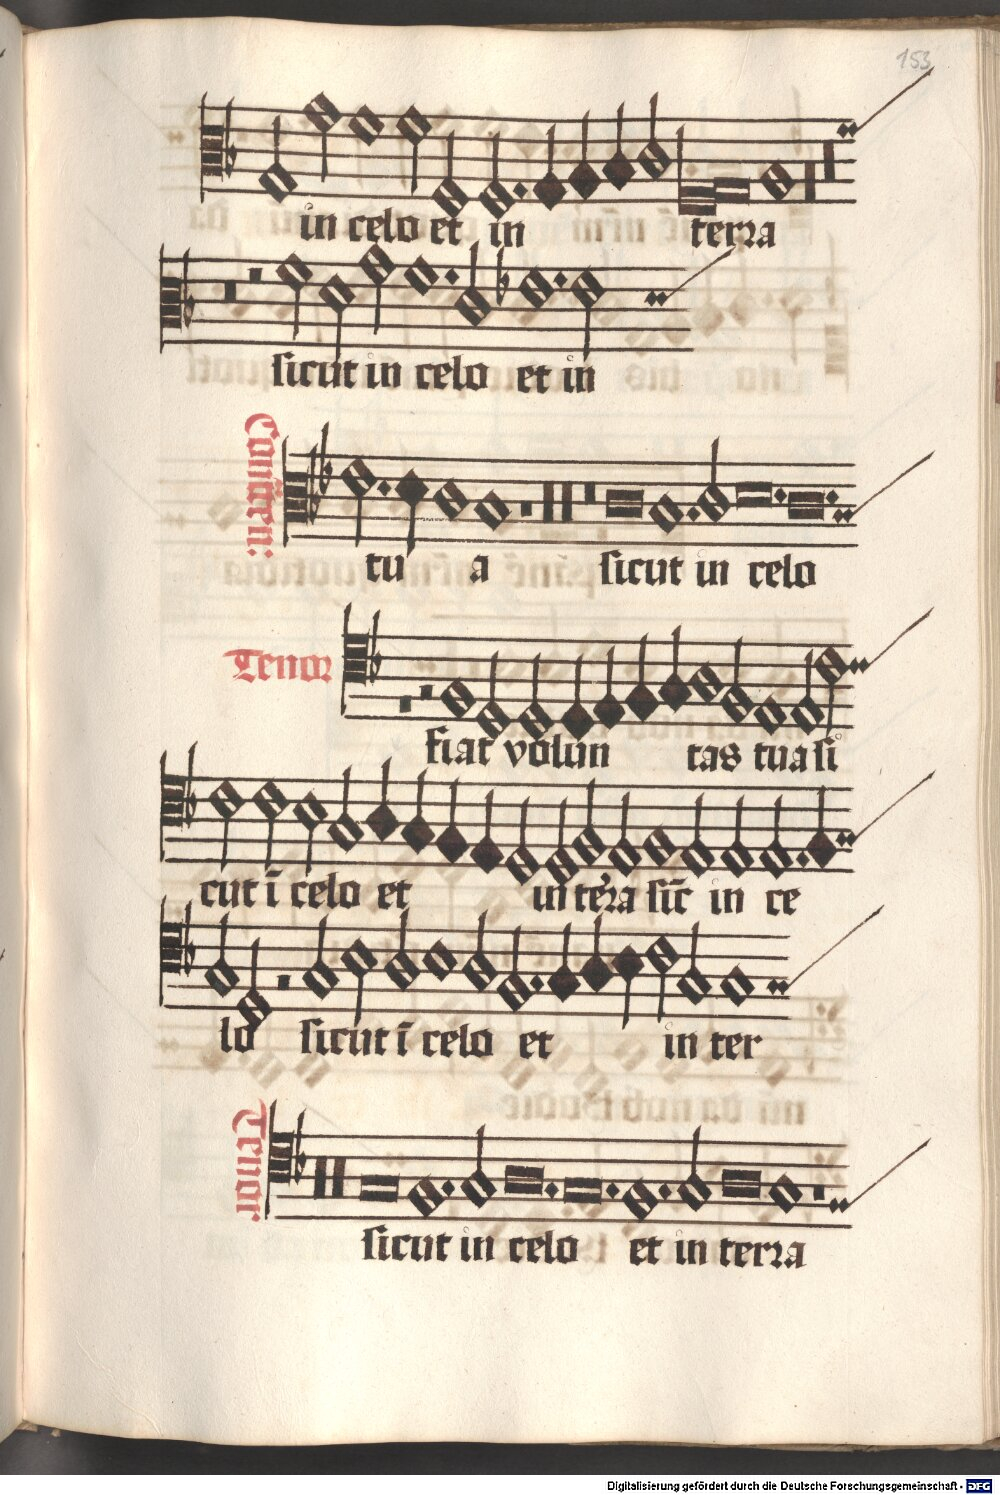 153
in celo et in terra
sicut in celo et in
tu a sicut in celo
Tenor
fiat volun tas tua si
cut ī celo et in terra sic̄ in ce
lo sicut ī celo et in ter
Tenor
sicut in celo et in terra
Digitalisierung gefördert durch die Deutsche Forschungsgemeinschaft - DFG